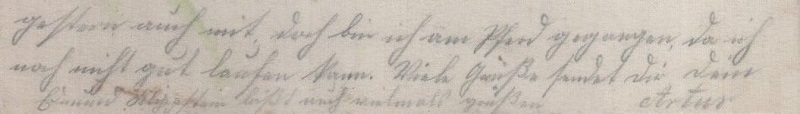 gestern auch mit, doch bin ich am Pferd gegangen, da ich
noch nicht gut laufen kann. Viele Grüße sendet Dir Dein
läßt auch vielmals grüßen Artur